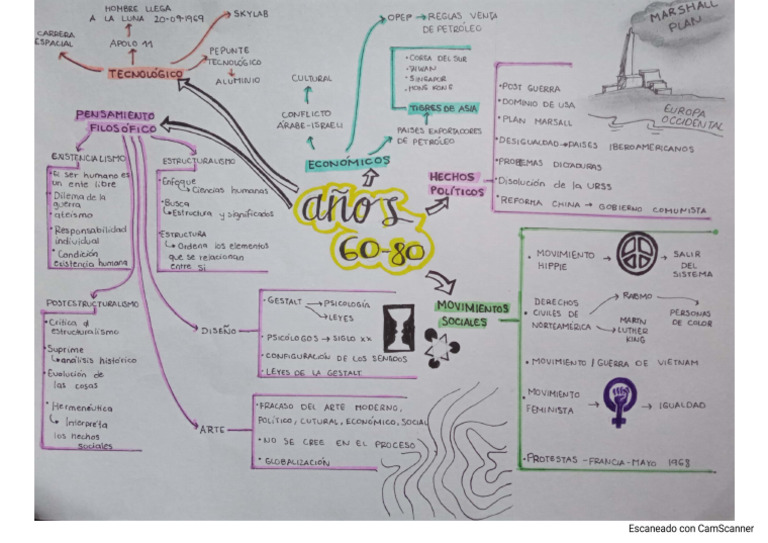 HOMBRE LLEGA
A LA LUNA 20-09-1969
SKYLAB
CARRERA
ESPACIAL
APOLO 11
PEPUNTE
TECNOLÓGICO
ALUMINIO
TECNOLÓGICO
OPEP → REGLAS VENTA
DE PETRÓLEO
CULTURAL
CONFLICTO
ÁRABE-ISRAELI
• COREA DEL SUR
• TAIWAN
• SINGAPUR
• HONG KONG
TIGRES DE ASIA
PAISES EXPORTADORES
DE PETRÓLEO
ECONÓMICOS
MARSHALL
PLAN
EUROPA
OCCIDENTAL
HECHOS
POLÍTICOS
• POST GUERRA
• DOMINIO DE USA
• PLAN MARSALL
DESIGUALDAD → PAISES IBEROAMERICANOS
• PROBEMAS DICTADURAS
• Disolución de la URSS
• REFORMA CHINA → GOBIERNO COMUNISTA
PENSAMIENTO
FILOSÓFICO
EXISTENCIALISMO
• El ser humano es
un ente libre
• Dilema de la
guerra
• ateismo
• Responsabilidad
individual
• Condición
existencia humana
ESTRUCTURALISMO
• Enfoque
↳ Ciencias humanas
• Busca
↳ Estructura y significados
• ESTRUCTURA
↳ Ordena los elementos
que se relacionan
entre si
años
60-80
POSTESTRUCTURALISMO
• Critica al
estructuralismo
• Suprime
↳ análisis histórico
• Evolución de
las cosas
• Hermenéutica
↳ Interpreta
los hechos
sociales
DISEÑO
• GESTALT → PSICOLOGÍA
→ LEYES
• PSICÓLOGOS → SIGLO XX
• CONFIGURACIÓN DE LOS SENSDOS
• LEYES DE LA GESTALT
ARTE
• FRACASO DEL ARTE MODERNO,
POLÍTICO, CUTURAL, ECONÓMICO, SOCIAL
• NO SE CREE EN EL PROCESO
• GLOBALIZACIÓN
MOVIMIENTOS
SOCIALES
• MOVIMIENTO
HIPPIE
→ SALIR
DEL
SISTEMA
• DERECHOS
CIVILES DE
NORTEAMÉRICA
RACISMO
MARTIN
LUTHER
KING
PERSONAS
DE COLOR
• MOVIMIENTO / GUERRA DE VIETNAM
• MOVIMIENTO
FEMINISTA
→ IGUALDAD
• PROTESTAS - FRANCIA - MAYO 1968
Escaneado con CamScanner